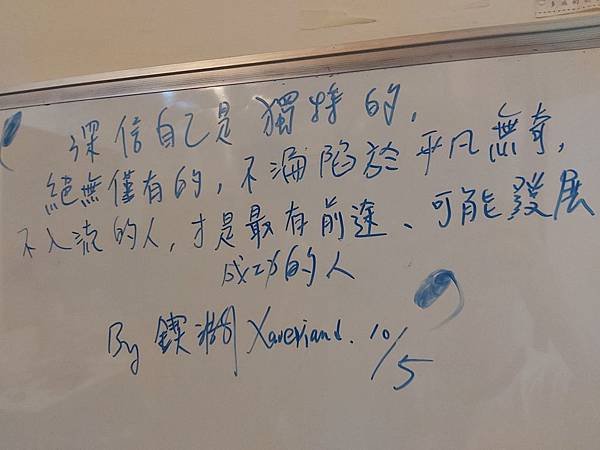 深信自己是獨特的,
絕無僅有的, 不淪陷於平凡無奇,
不入流的人, 才是最有前途、可能發展
成功的人
By 10/5